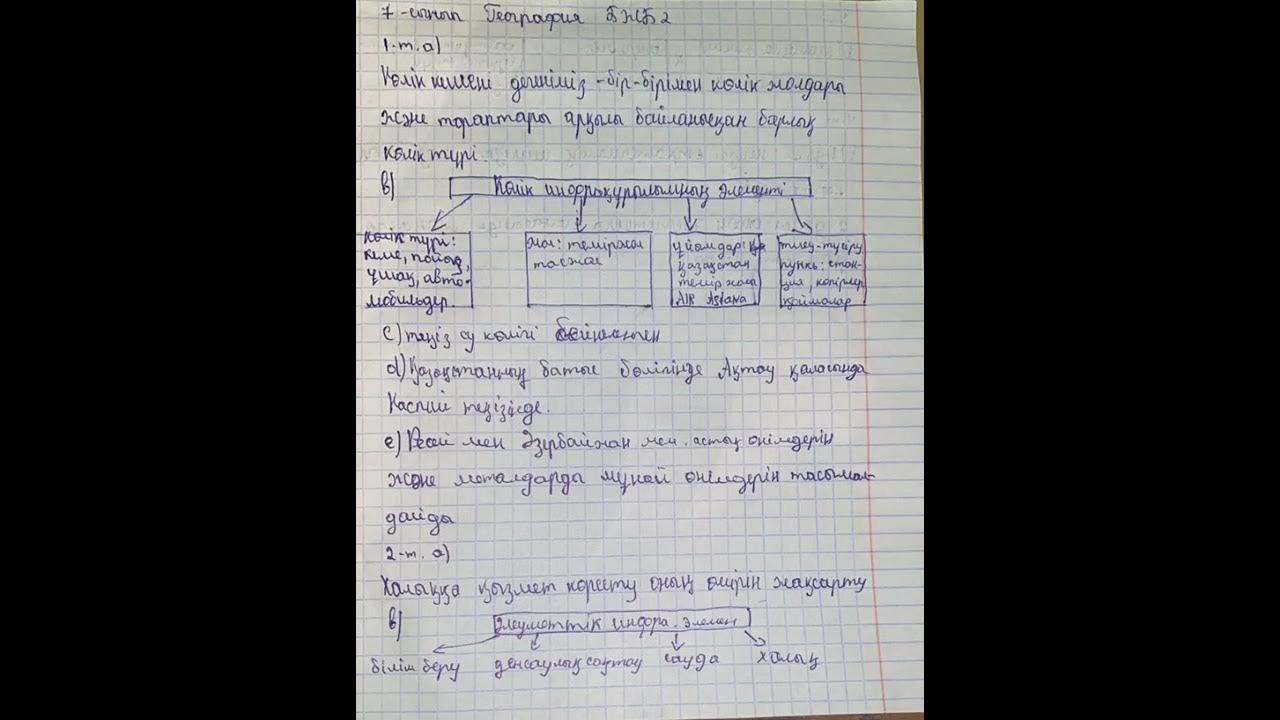 7-сынып География БЖБ 2
1-т. а)
Көлік кешені дегеніміз - бір-бірімен көлік жолдары
және тораптары арқылы байланысқан барлық
көлік түрі.
в)
Көлік инфрақұрылымның элементі
көлік түрі:
кеме, пойыз,
ұшақ, авто-
мобильдер.
жол: теміржол
тасжол
ұйымдар:
қазақстан
темір жолы
AIR Astana
тиеу-түсіру
пункь: стан-
ция, көпірлер
қоймалар
с) теңіз су көлігі бейнеленген
d) Қазақстанның батыс бөлігінде Ақтау қаласында
Каспий теңізінде.
е) Ресей мен Әзірбайжан мем. астық өнімдерін
және металдарды мұнай өнімдерін тасымал-
дайды
2-т. а)
Халыққа қызмет көрсету оның өмірін жақсарту
в)
Әлеуметтік инфра. элемен
білім беру денсаулық сақтау сауда халық